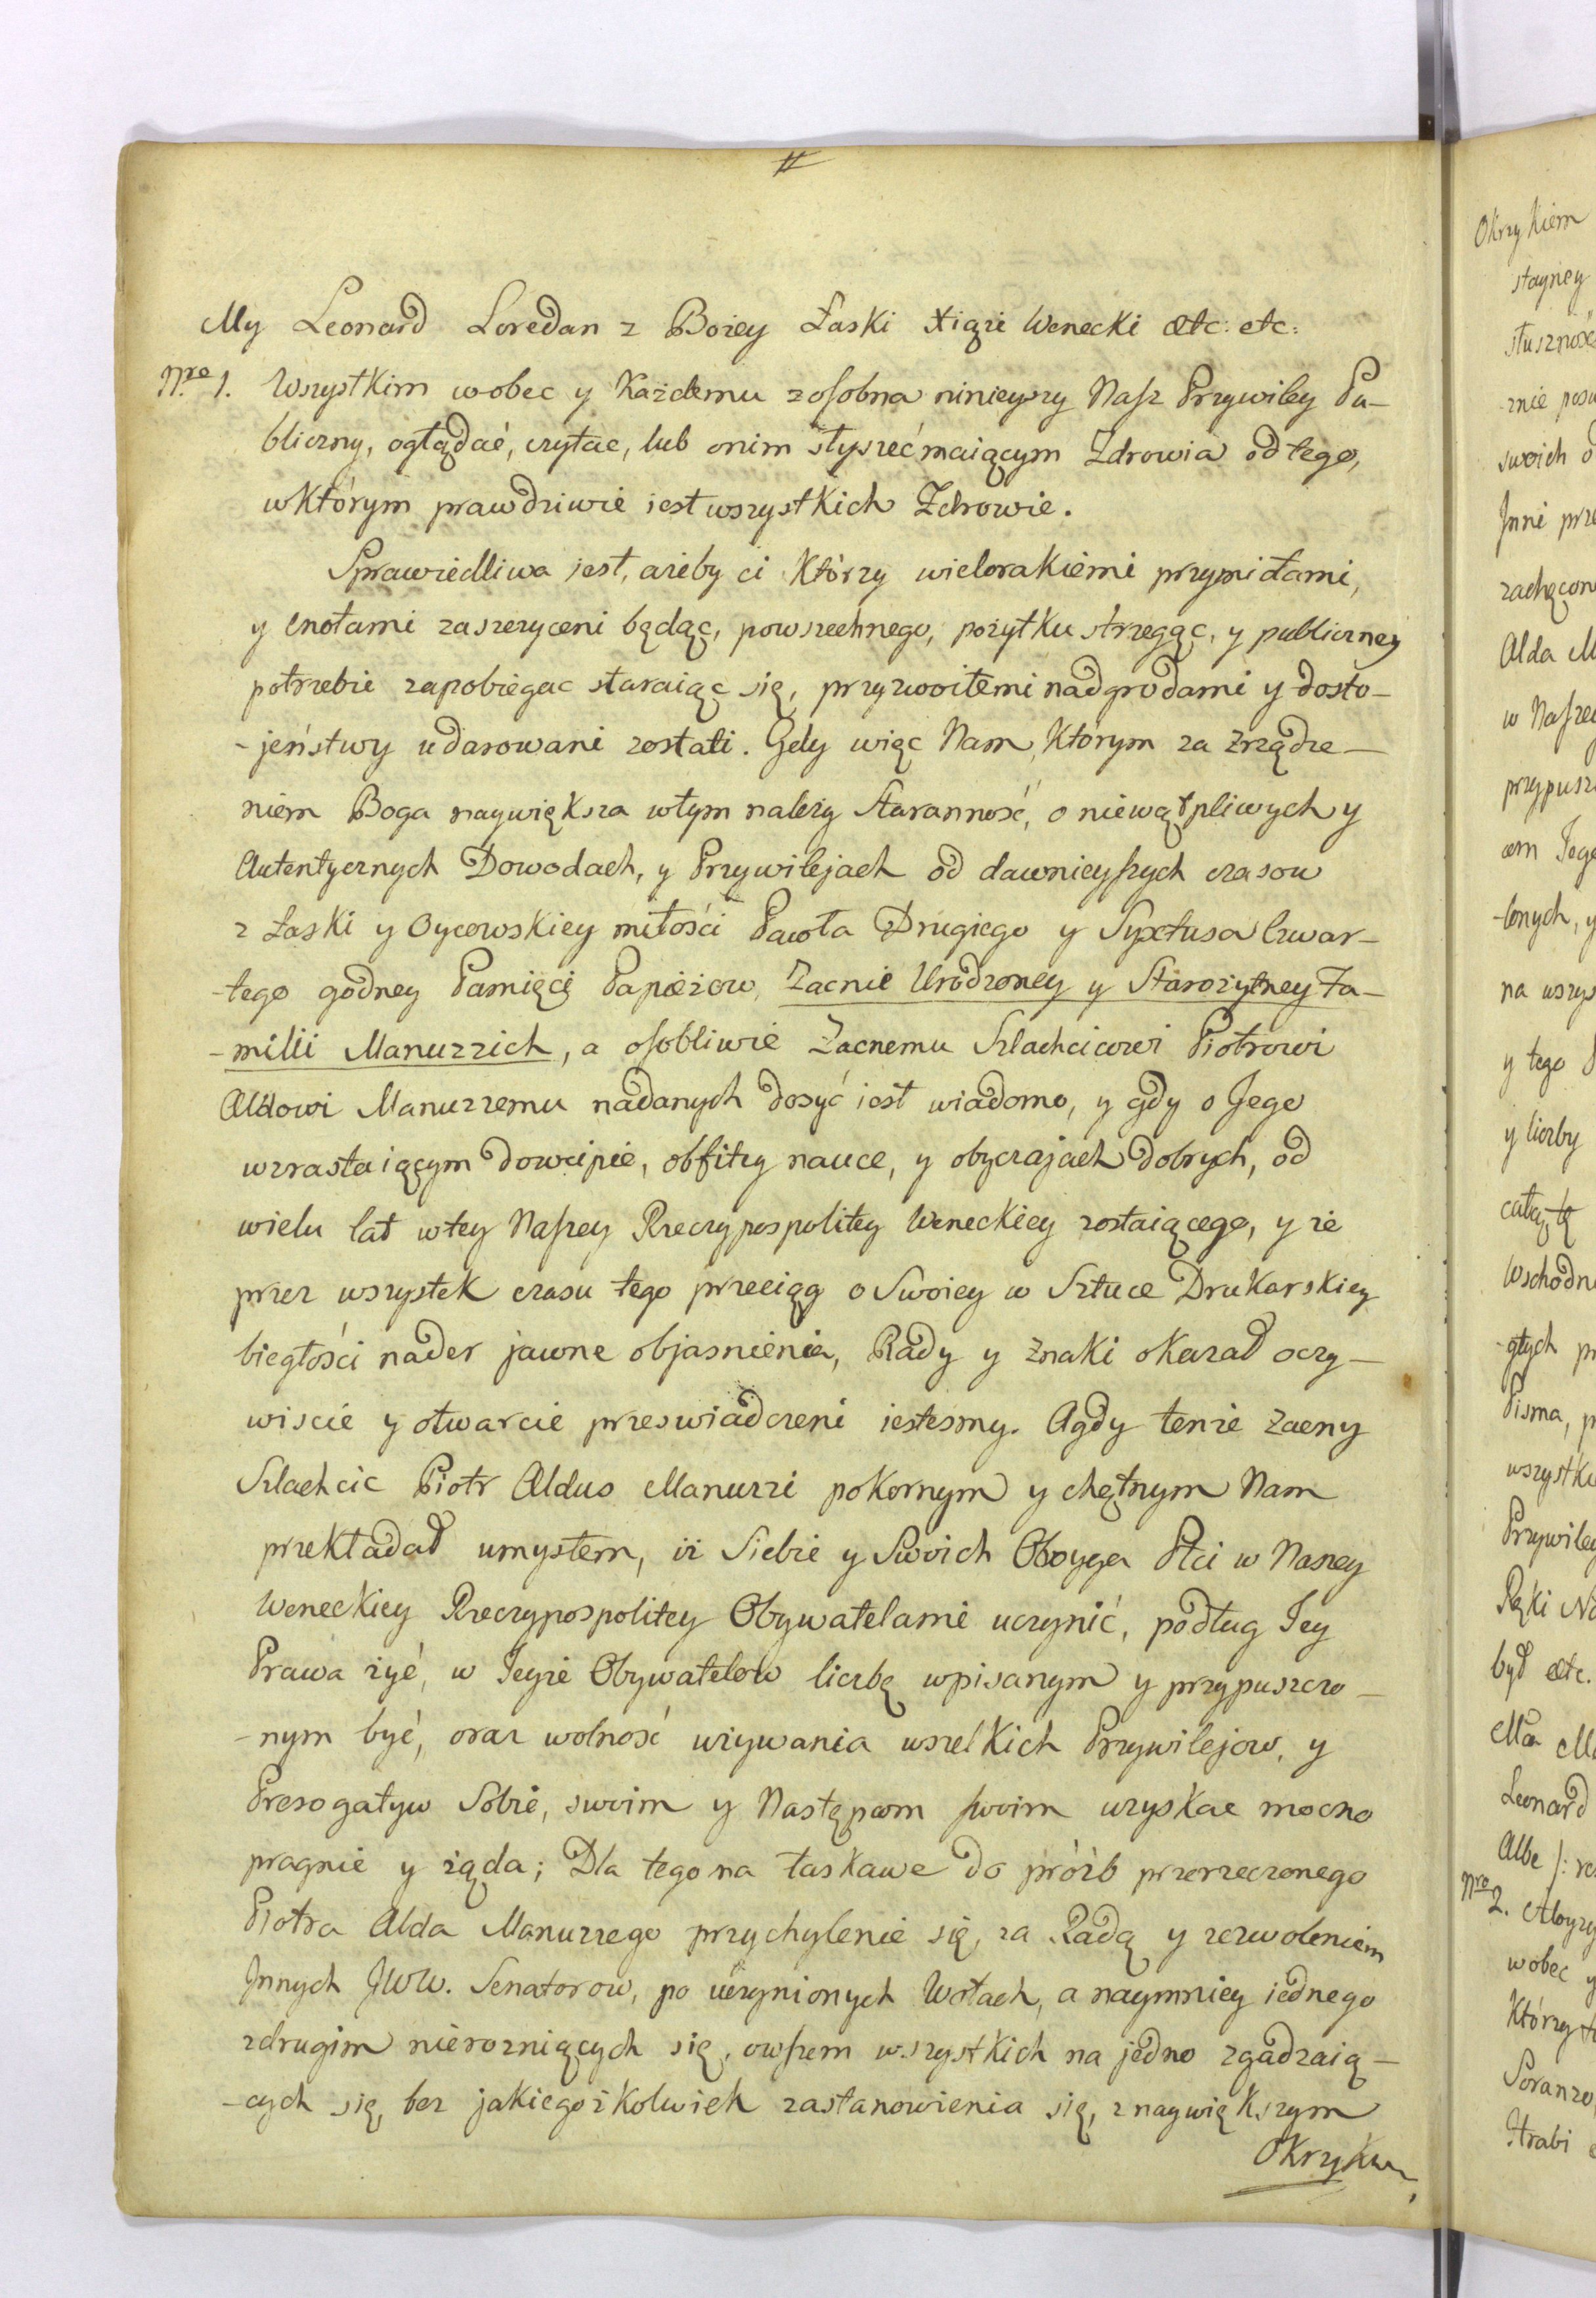 #
My Leonard Loredan z Bożey Łaski Xiąże Wenecki etc: etc:
Nro 1. Wszystkim wobec y Każdemu zosobna ninieyszy Nasz Przywiley Pu-
bliczny, oglądać, czytac, lub onim słyszeć maiącym Zdrowia od tego,
wktórym prawdziwie iest wszystkich Zdrowie.
Sprawiedliwa jest, ażeby ci Którzy wielorakiemi przymiotami,
y Cnotami zaszczyceni będąc, powszechnego, pożytku strzegąc, y publiczney
potrzebie zapobiegac staraiąc się, przyzwoitemi nadgrodami y dosto-
-jeństwy udarowani zostali. Gdy więc Nam, Którym za Zrządze-
niem Boga naywiększa wtym należy Staranność, o niewątpliwych y
Autentycznych Dowodach, y Przywilejach od dawnieyszych czasow
z Łaski y Oycowskiey miłości Pawła Drugiego y Syxtusa Czwar-
-tego godney Pamięci Papieżow, Zacnie Urodzoney y Starożytney Fa-
-milii Manuzzich, a osobliwie Zacnemu Szlachcicowi Piotrowi
Aldowi Manuzzemu nadanych dosyć iest wiadomo, y gdy o Jego
wzrastaiącym dowcipie, obfitey nauce, y obyczajach dobrych, od
wielu lat wtey Naszey Rzeczypospolitey Weneckiey zostaiącego, y że
przez wszystek czasu tego przeciąg o Swoiey w Sztuce Drukarskiey
biegłości nader jawne objasnienia, Rady y Znaki okazał oczy-
wiscie y otwarcie przeswiadczeni iestesmy. Agdy tenże Zacny
Szlachcic Piotr Aldus Manuzzi pokornym y chętnym Nam
przekładał umysłem, iż Siebie y Swoich Oboyga Płci w Naszey
Weneckiey Rzeczypospolitey Obywatelami uczynić, podług Jey
Prawa żyć, w Jeyże Obywatelow liczbę wpisanym y przypuszczo-
-nym być, oraz wolność używania wszelkich Przywilejow, y
Prerogatyw Sobie, swoim y Następcom swoim uzyskac mocno
pragnie y żąda; Dla tego na łaskawe do próźb przerzeczonego
Piotra Alda Manuzzego przychylenie się, za Radą y zezwoleniem
Jnnych JWW. Senatorow, po uczynionych Wotach, a naymniey iednego
zdrugim nierozniących się, owszem wszystkich na jedno zgadzaią-
-cych się, bez jakiegożkolwiek zastanowienia się, z naywiększym
Okrzykiem
stayney
słusznośc
swoich
Jnni prze
Alda M
w Naszey
na wszys
y tego
y liczby
całey tę
Wschodn
Pisma,
Przywiley
był etc.
Leonard
Albe
Nro 2. Aloyzy
wobec y
Którzy
Soranzo